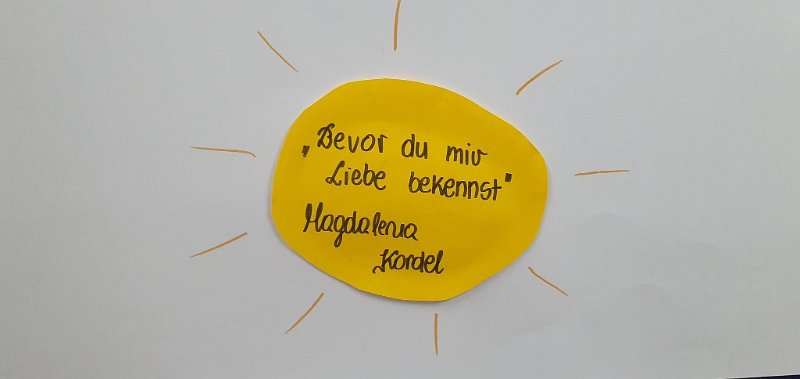 „Bevor du mir
Liebe bekennst"
Magdalena
Kordel